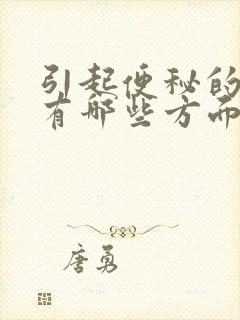 引起便秘的
有哪些方面
唐勇